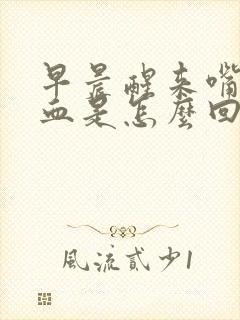 早晨醒来嘴
血是怎麼回
風流貳少1